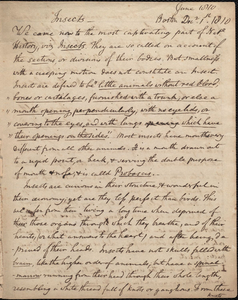 June 1810
Insects
Boston Decr 1st 1810
We come now to the most captivating part of Natl
History, viz Insects. They are so called on account of
the sections or divisions of their bodies. Not smallness
with a creeping motion does not constitute an insect.
Insects are defined to be little animals without red blood,
bones or cartilages, furnished with a trunk, or else a
mouth opening perpendicularly, with no eyelids, or
covering to the eyes; and with lungs opening which have
their openings on the side. Most insects have mouths very
different from all other animals. It is a mouth drawn out
to a rigid point, a beak, & serving the double purpose
of mouth & nose, & is called Proboscis.
Insects are curious in their structure & wonderful in
their œconomy, yet are they less perfect than birds. This
we infer from their living a long time when deprived of
those through which they breathe, and of their
hearts, or what answers to the heart; and after being de-
prived of their heads. Insects have not skulls filled with
brain, like the higher order of animals, but have a spinal-
marrow running from their head through their whole length,
resembling a white thread full of knots or ganglions. From these